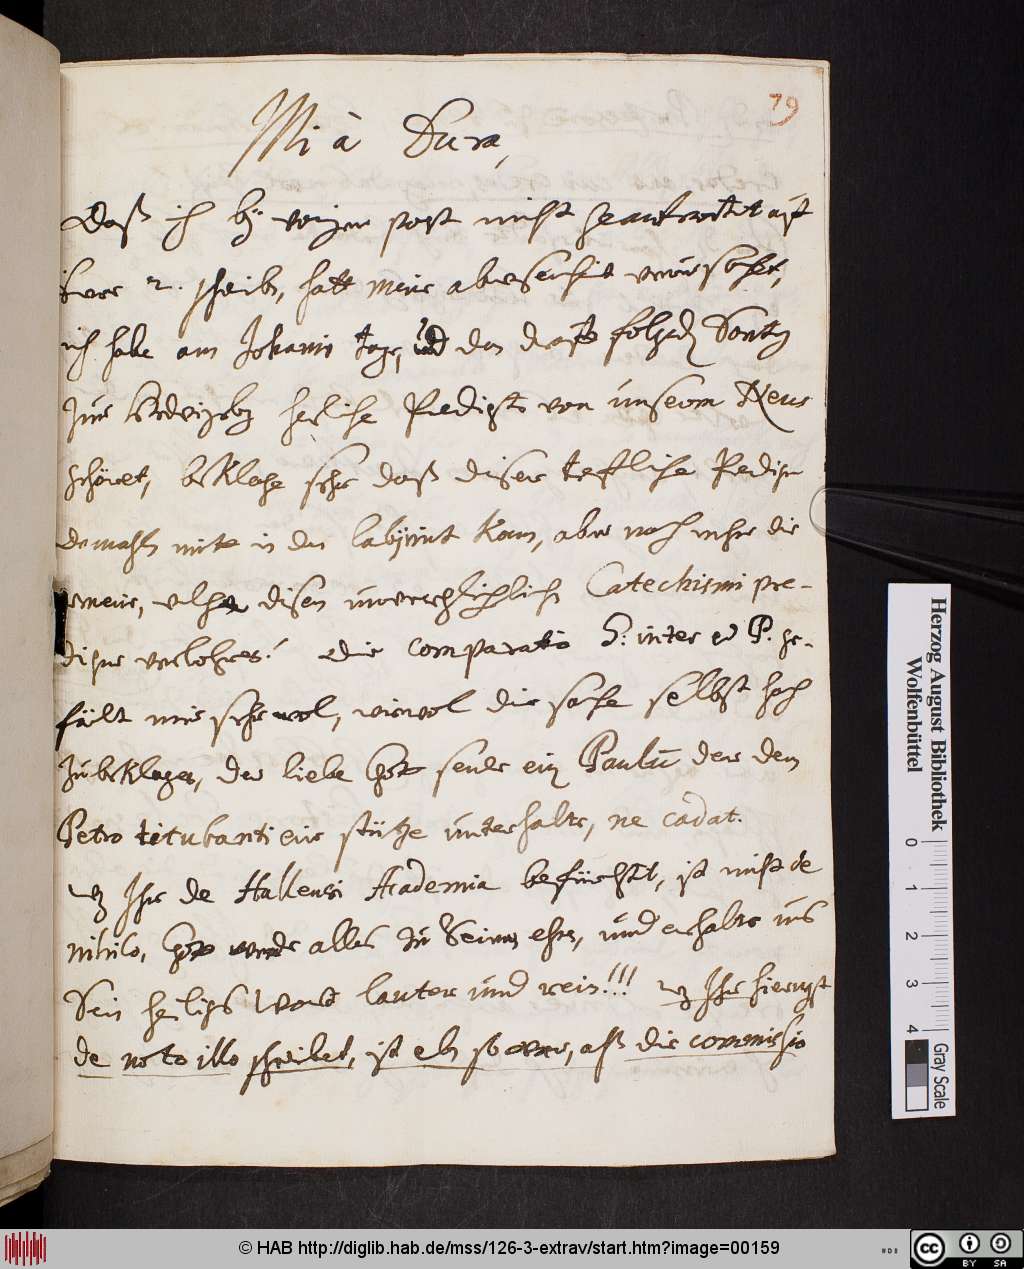 79
Mià Dura,
Daß ich bey voriger post nicht geantwortet auff
ihr 2. schreiben, hatt meine abwesenheit verursachet,
ich habe am Johannis tage, und den drauff folgenden Sontag
zur Hedwigsburg herliche Predigten von unserem
gehöret, beklage sehr daß dieser trefliche Prediger
damahls mitt in den labyrint kam, aber noch mehr die
welche disen unvergleichlichen Catechismi pre-
diger verlohren! Die comparatio S: inter et P. ge-
fällt mir sehr wol, wiewol die sache selbst hoch
zubeklagen, der liebe Gott sende ein Paulū der dem
Petro titubanti eine stütze unterhalte, ne cadat.
wz Ihr de Hallensi Academia befürchtet, ist nicht de
nihilo, Gott wende alles zu Seinen ehren, und erhalte uns
Sein heiliges Wort lauter und rein!!! wz Ihr hiernegst
de noto illo schreibet, ist eben so war, alß die commissio
Herzog August Bibliothek
Wolfenbüttel
0 1 2 3 4
Gray Scale
© HAB http://diglib.hab.de/mss/126-3-extrav/start.htm?image=00159
cc BY SA